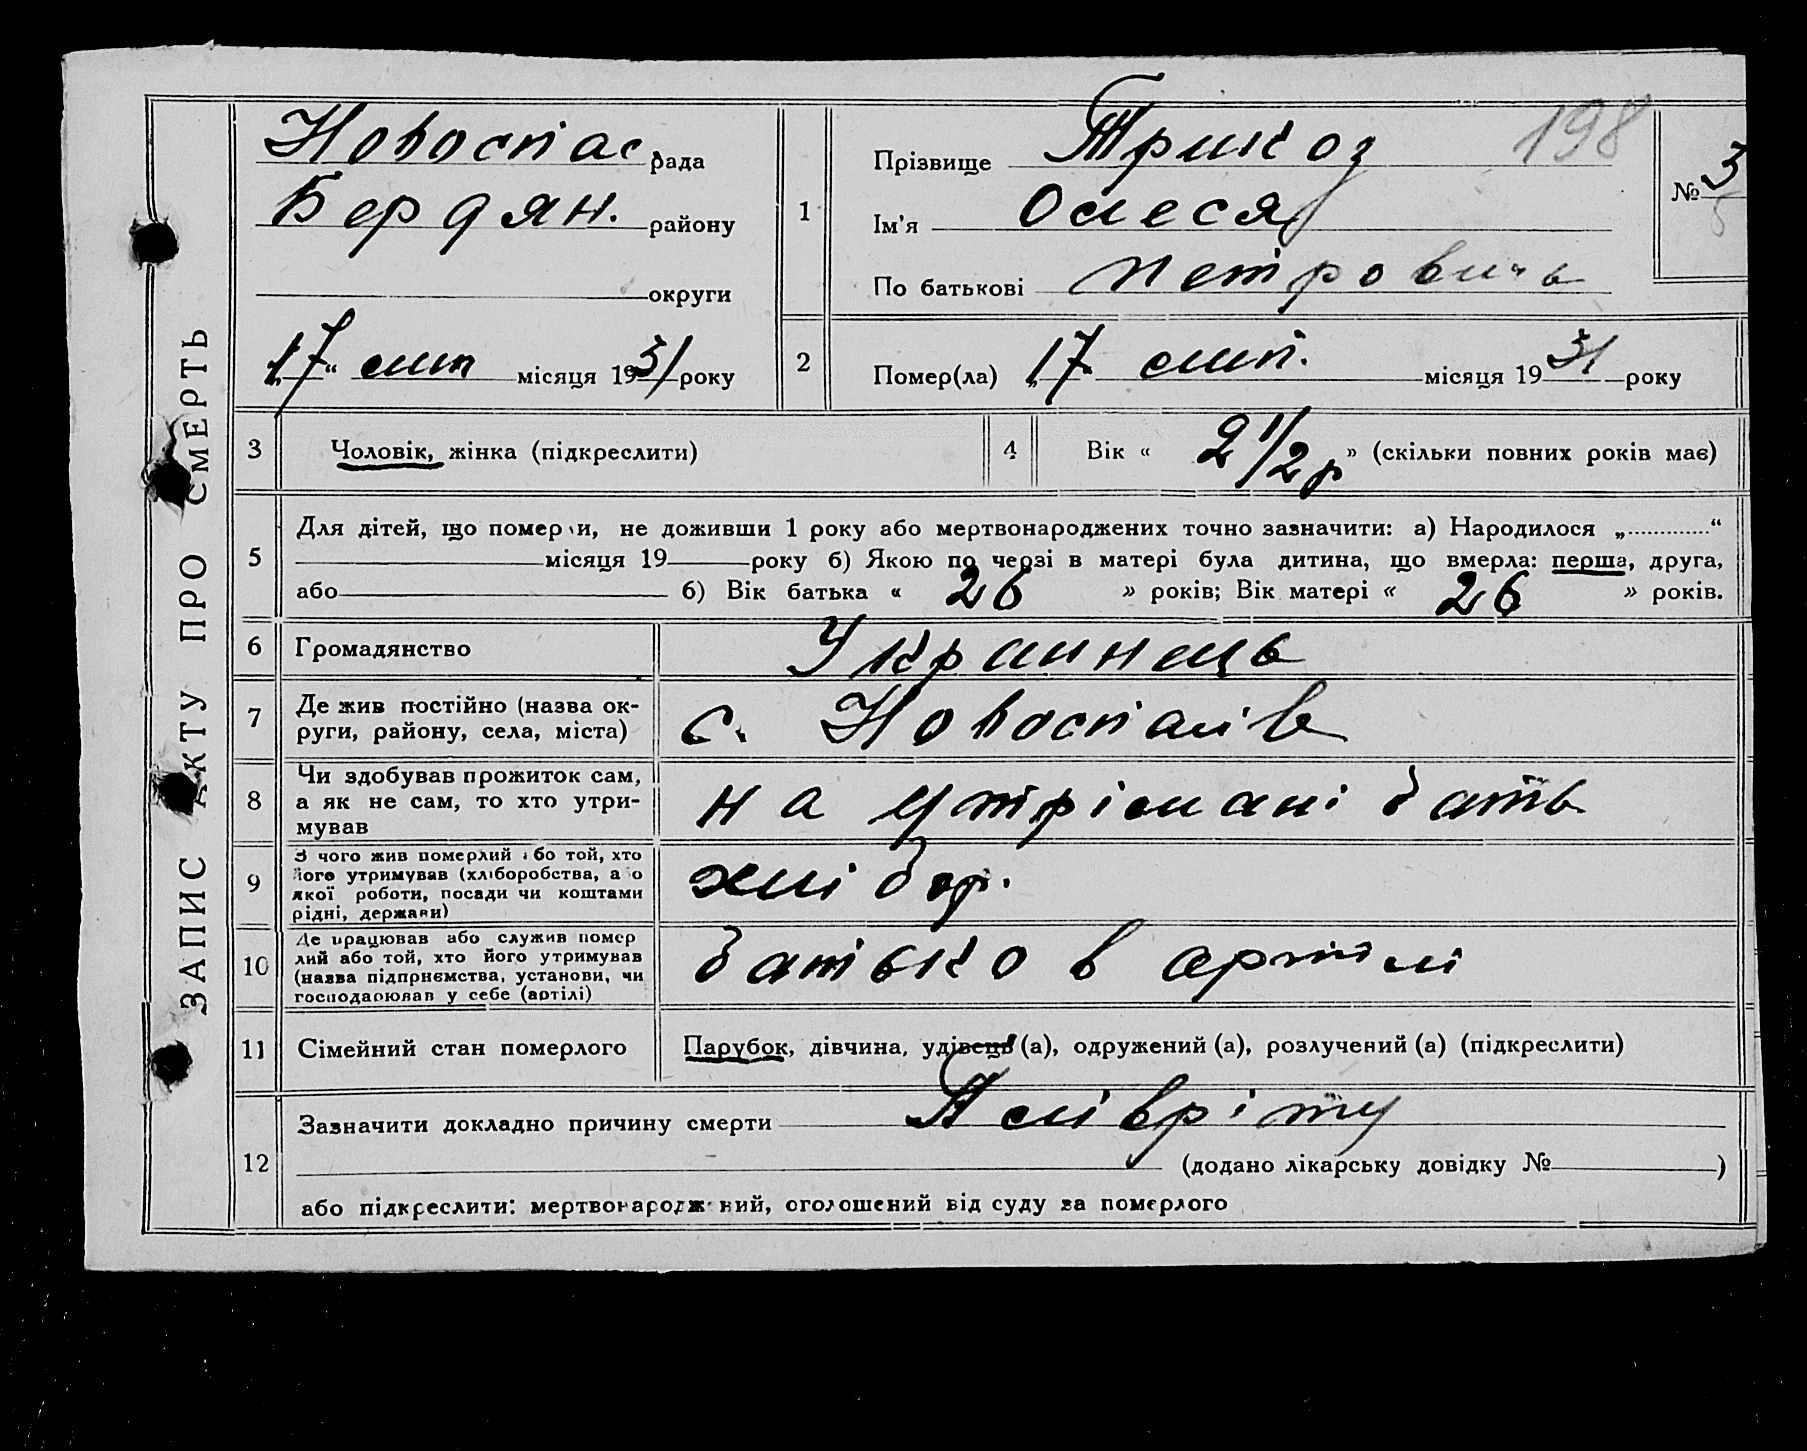 ЗАПИС АКТУ ПРО СМЕРТЬ
Новоспас рада
Бердян. району
округи
„17“ лип місяця 1931 року
1
Прізвище Трикоз
198
№ 3
Ім'я Олеся
По батькові Петрович
2
Помер(ла) „17 лип. місяця 1931 року
3 Чоловік, жінка (підкреслити)
4 Вік « 2 1/2 р » (скільки повних років має)
5 Для дітей, що померли, не доживши 1 року або мертвонароджених точно зазначити: а) Народилося „............“
місяця 19 року б) Якою по черзі в матері була дитина, що вмерла: перша, друга,
або б) Вік батька « 26 » років; Вік матері « 26 » років.
6 Громадянство Украинець
7 Де жив постійно (назва ок-
руги, району, села, міста) с. Новоспасів
8 Чи здобував прожиток сам,
а як не сам, то хто утри-
мував на утрімані бать
9 З чого жив померлий або той, хто
його утримував (хліборобства, або
якої роботи, посади чи коштами
рідні, держави) хлібор.
10 Де працював або служив помер
лий або той, хто його утримував
(назва підприємства, установи, чи
господарював у себе (артілі) батько в артілі
11 Сімейний стан померлого Парубок, дівчина, удівець (а), одружений (а), розлучений (а) (підкреслити)
12 Зазначити докладно причину смерти Плівріту
(додано лікарську довідку № )
або підкреслити: мертвонароджений, оголошений від суду за померлого